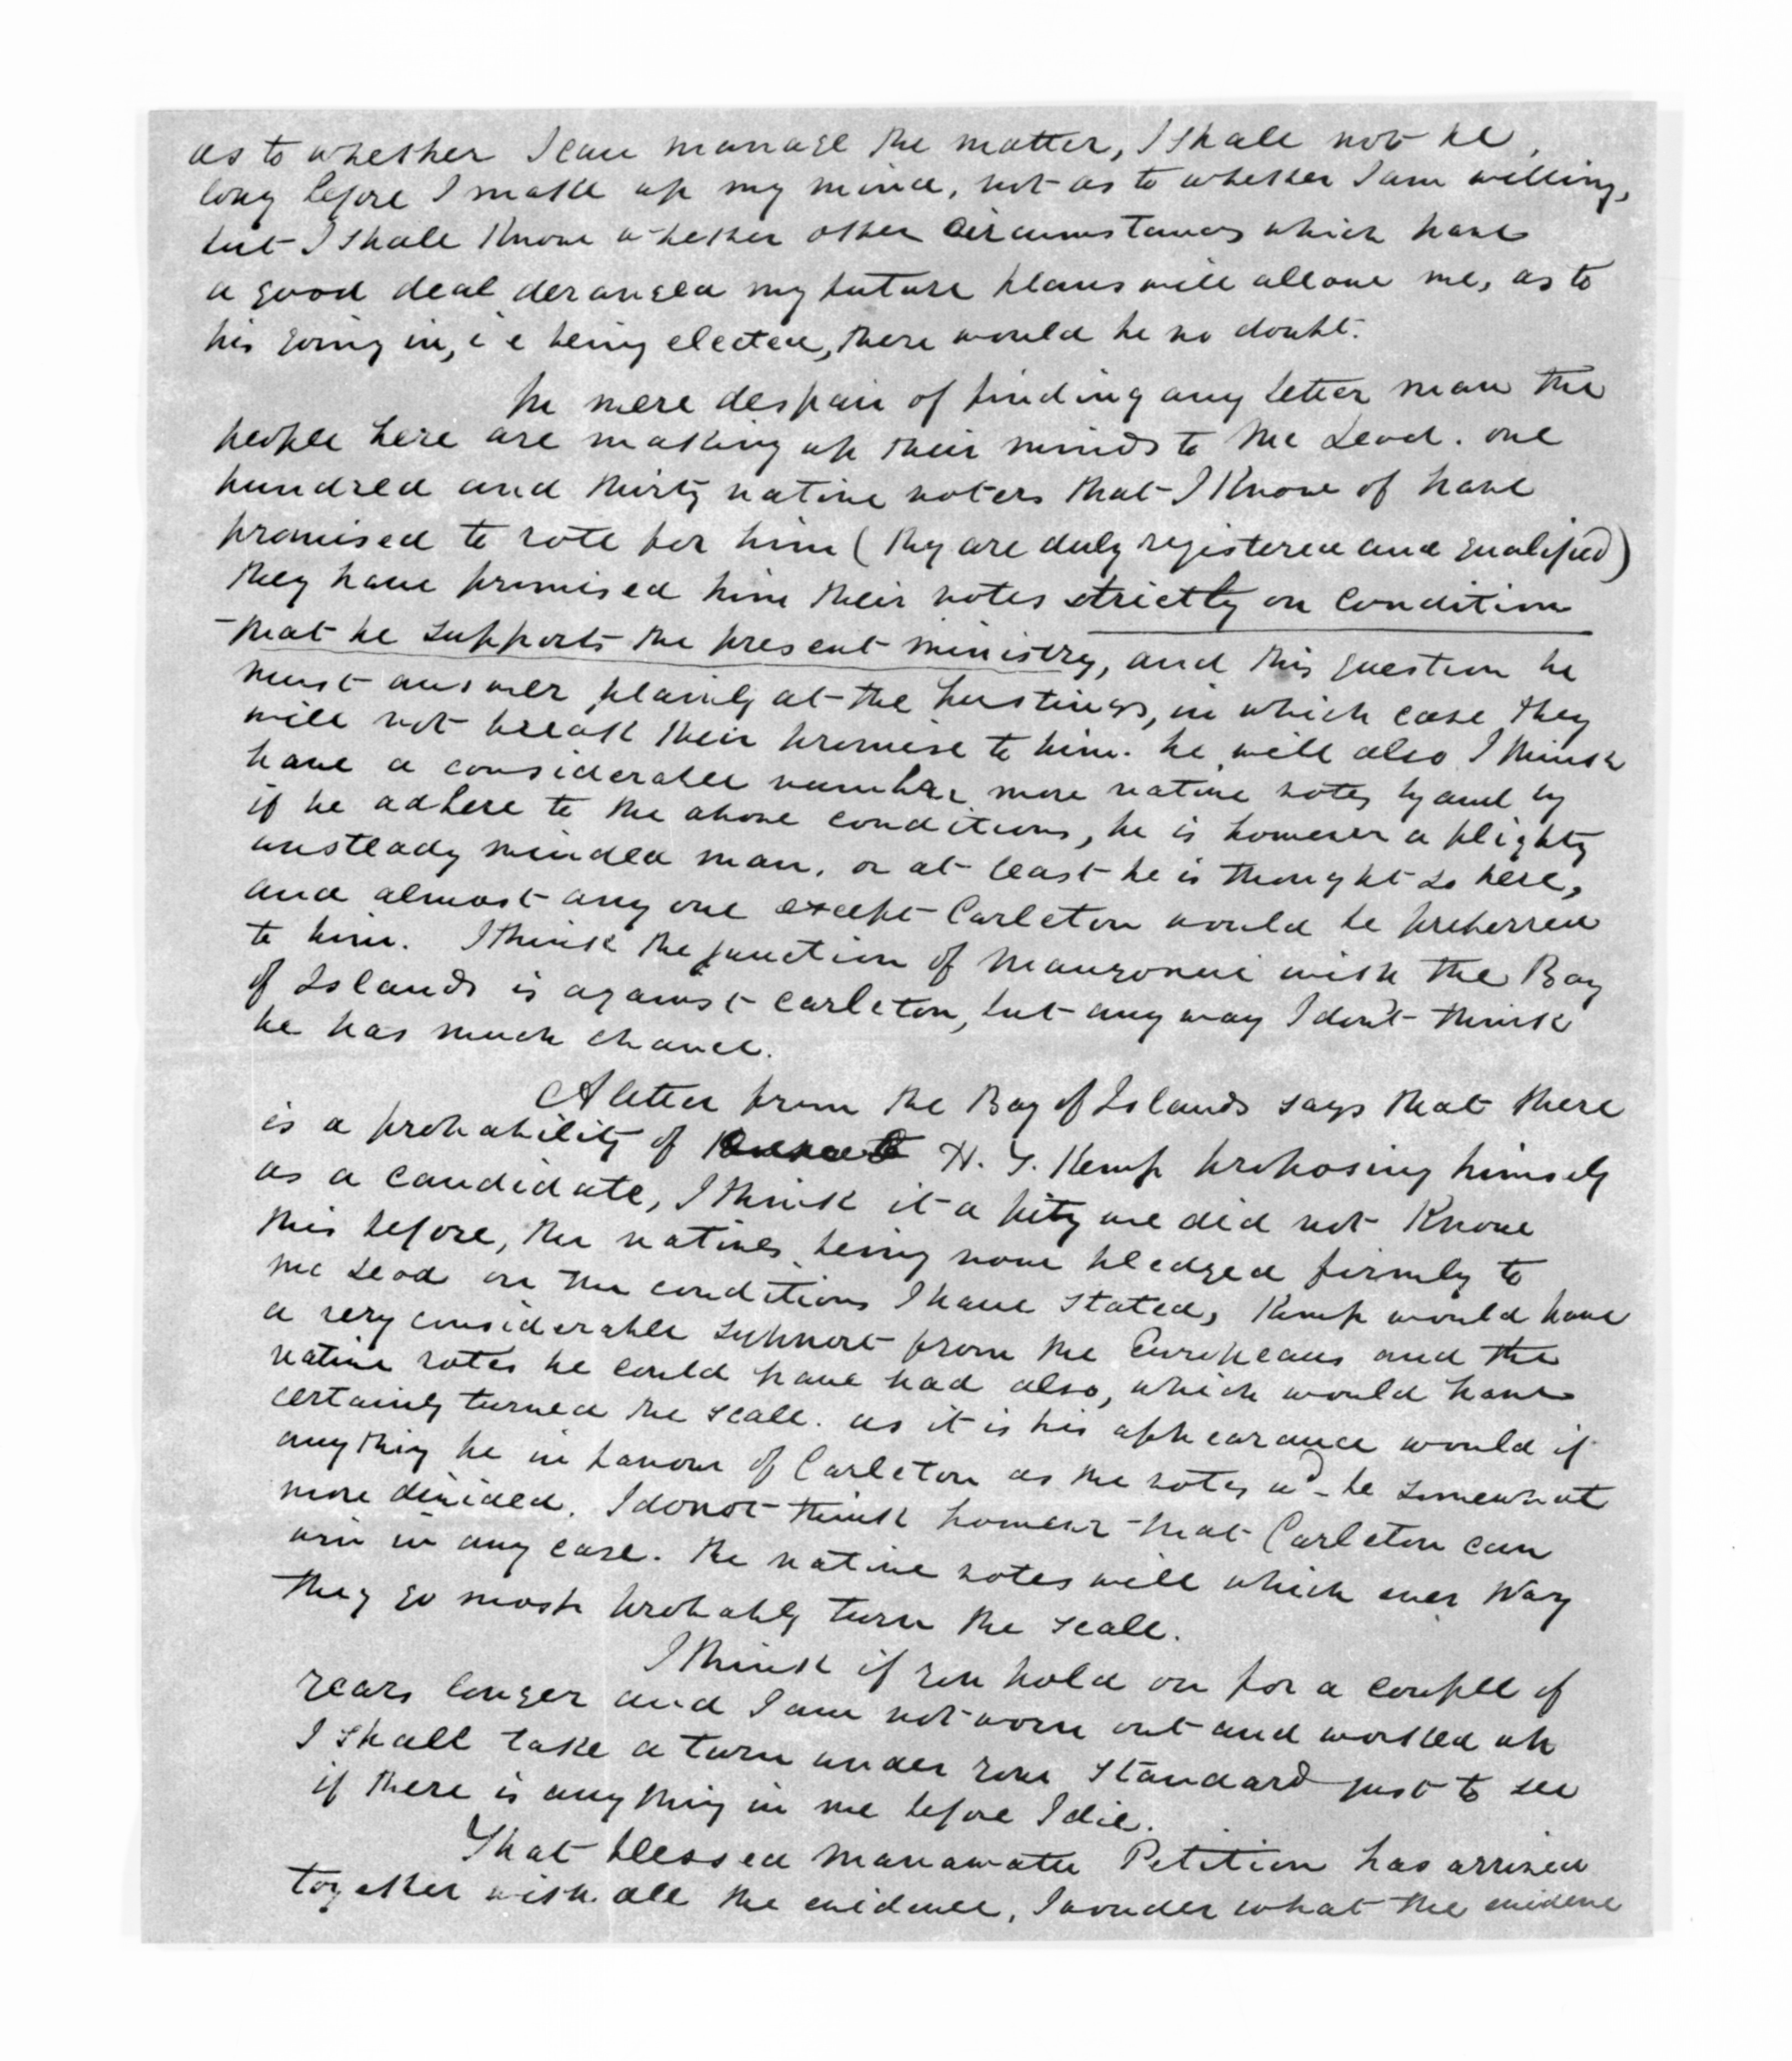 as to whether I can manage the matter, I shall not be
long before I make up my mind, not as to whether I am willing,
but I shall know whether other circumstances which have
a good deal deranged my future plans will allow me, as to
his going in, i e being elected, there would be no doubt.
In mere despair of finding any better man the
people here are making up their minds to Mc Leod. one
hundred and thirty native voters that I know of have
promised to vote for him (they are duly registered and qualified)
they have promised him their votes strictly on condition
that he supports the present ministry, and this question he
must answer plainly at the hustings, in which case they
will not break their promise to him. he will also I think
have a considerable number more native votes by and by
if he adhere to the above conditions, he is however a flighty
unsteady minded man, or at least he is thought so here,
and almost any one except Carleton would be preferred
to him. I think the junction of Mangonui with the Bay
of Islands is against Carleton, but any way I don't think
he has much chance.
A letter from the Bay of Islands says that there
is a probability of H. T. Kemp proposing himself
as a candidate, I think it a pity we did not know
this before, the natives being now pledged firmly to
Mc Leod on the conditions I have stated, Kemp would have
a very considerable support from the Europeans and the
native votes he could have had also, which would have
certainly turned the scale. as it is his appearance would if
anything be in favour of Carleton as the votes wd be somewhat
more divided. I do not think however that Carleton can
win in any case. the native votes will which ever way
they go most probably turn the scale.
I think if you hold on for a couple of
years longer and I am not worn out and worked up
I shall take a turn under your standard just to see
if there is anything in me before I die.
That blessed Manawatu Petition has arrived
together with all the evidence, I wonder what the evidence